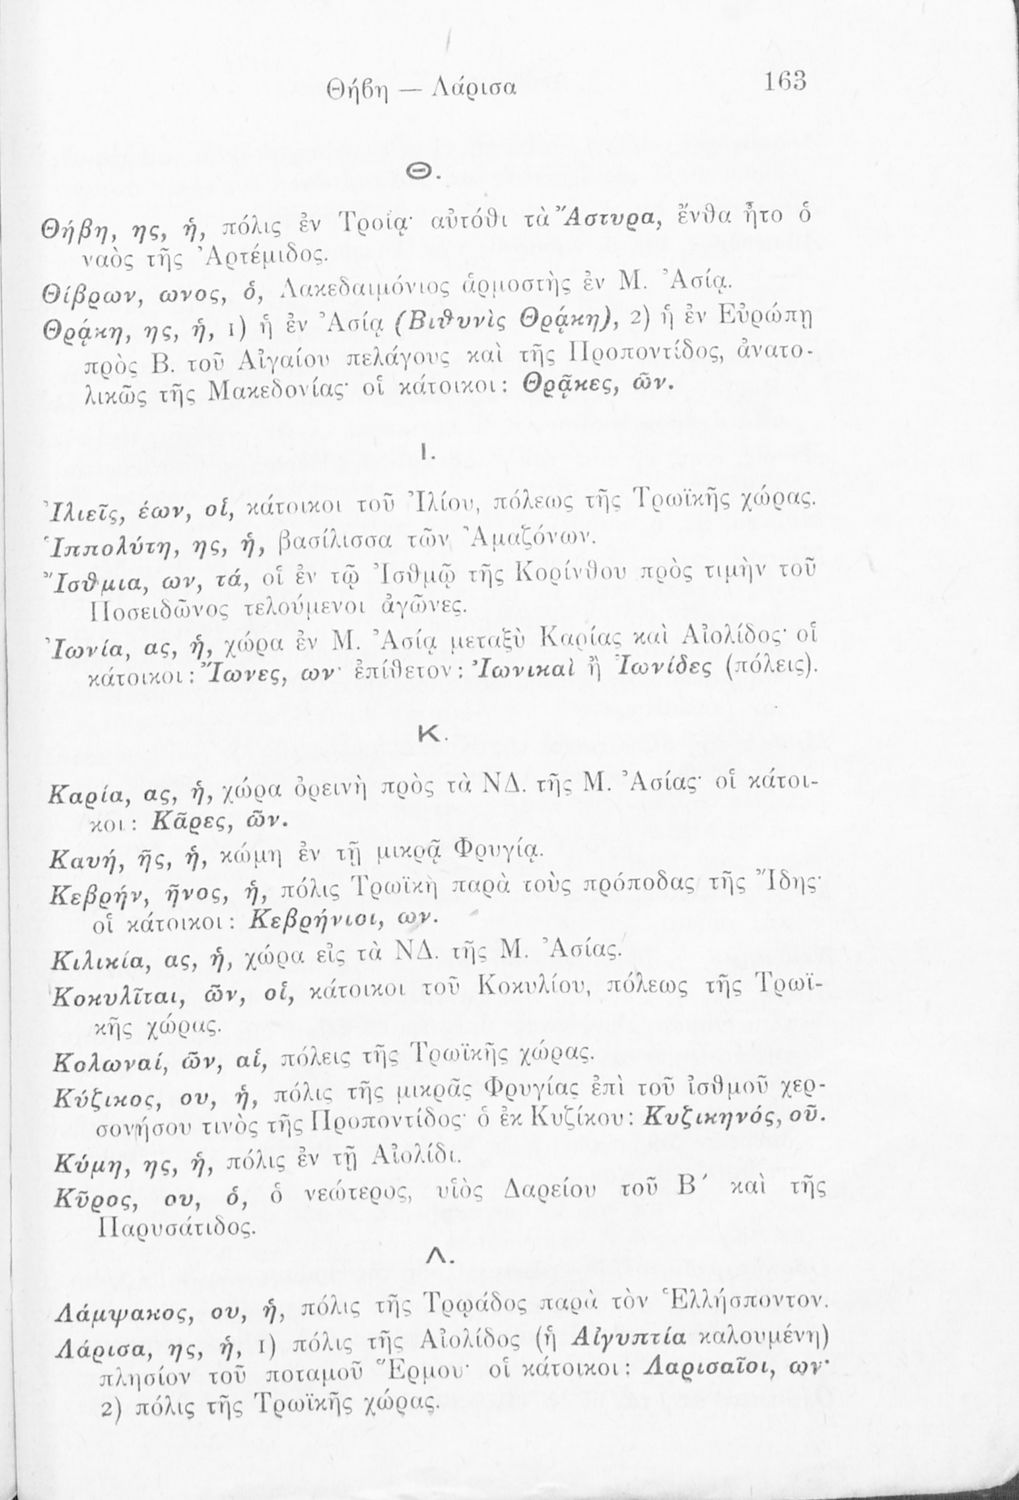 Θήβη — Λάρισα 163
Θ.
Θήβη, ης, ἡ, πόλις ἐν Τροίᾳ· αὐτόθι τὰ Ἄστυρα, ἔνθα ἦτο ὁ
ναὸς τῆς Ἀρτέμιδος.
Θίβρων, ωνος, ὁ, Λακεδαιμόνιος ἁρμοστὴς ἐν Μ. Ἀσίᾳ.
Θρᾴκη, ης, ἡ, 1) ἡ ἐν Ἀσίᾳ (Βιθυνὶς Θρᾴκη), 2) ἡ ἐν Εὐρώπῃ
πρὸς Β. τοῦ Αἰγαίου πελάγους καὶ τῆς Προποντίδος, ἀνατο-
λικῶς τῆς Μακεδονίας· οἱ κάτοικοι: Θρᾷκες, ῶν.
Ι.
Ἰλιεῖς, έων, οἱ, κάτοικοι τοῦ Ἰλίου, πόλεως τῆς Τρωϊκῆς χώρας.
Ἱππολύτη, ης, ἡ, βασίλισσα τῶν Ἀμαζόνων.
Ἴσθμια, ων, τά, οἱ ἐν τῷ Ἰσθμῷ τῆς Κορίνθου πρὸς τιμὴν τοῦ
Ποσειδῶνος τελούμενοι ἀγῶνες.
Ἰωνία, ας, ἡ, χώρα ἐν Μ. Ἀσίᾳ μεταξὺ Καρίας καὶ Αἰολίδος· οἱ
κάτοικοι: Ἴωνες, ων· ἐπίθετον: Ἰωνικαὶ ἢ Ἰωνίδες (πόλεις).
Κ.
Καρία, ας, ἡ, χώρα ὀρεινὴ πρὸς τὰ ΝΔ. τῆς Μ. Ἀσίας· οἱ κάτοι-
κοι: Κᾶρες, ῶν.
Καυή, ῆς, ἡ, κώμη ἐν τῇ μικρᾷ Φρυγίᾳ.
Κεβρήν, ῆνος, ἡ, πόλις Τρωϊκὴ παρὰ τοὺς πρόποδας τῆς Ἴδης·
οἱ κάτοικοι: Κεβρήνιοι, ων.
Κιλικία, ας, ἡ, χώρα εἰς τὰ ΝΔ. τῆς Μ. Ἀσίας.
Κοκυλῖται, ῶν, οἱ, κάτοικοι τοῦ Κοκυλίου, πόλεως τῆς Τρωϊ-
κῆς χώρας.
Κολωναί, ῶν, αἱ, πόλεις τῆς Τρωϊκῆς χώρας.
Κύζικος, ου, ἡ, πόλις τῆς μικρᾶς Φρυγίας ἐπὶ τοῦ ἰσθμοῦ χερ-
σονήσου τινὸς τῆς Προποντίδος· ὁ ἐκ Κυζίκου: Κυζικηνός, οῦ.
Κύμη, ης, ἡ, πόλις ἐν τῇ Αἰολίδι.
Κῦρος, ου, ὁ, ὁ νεώτερος, υἱὸς Δαρείου τοῦ Β΄ καὶ τῆς
Παρυσάτιδος.
Λ.
Λάμψακος, ου, ἡ, πόλις τῆς Τρῳάδος παρὰ τὸν Ἑλλήσποντον.
Λάρισα, ης, ἡ, 1) πόλις τῆς Αἰολίδος (ἡ Αἰγυπτία καλουμένη)
πλησίον τοῦ ποταμοῦ Ἕρμου· οἱ κάτοικοι: Λαρισαῖοι, ων·
2) πόλις τῆς Τρωϊκῆς χώρας.